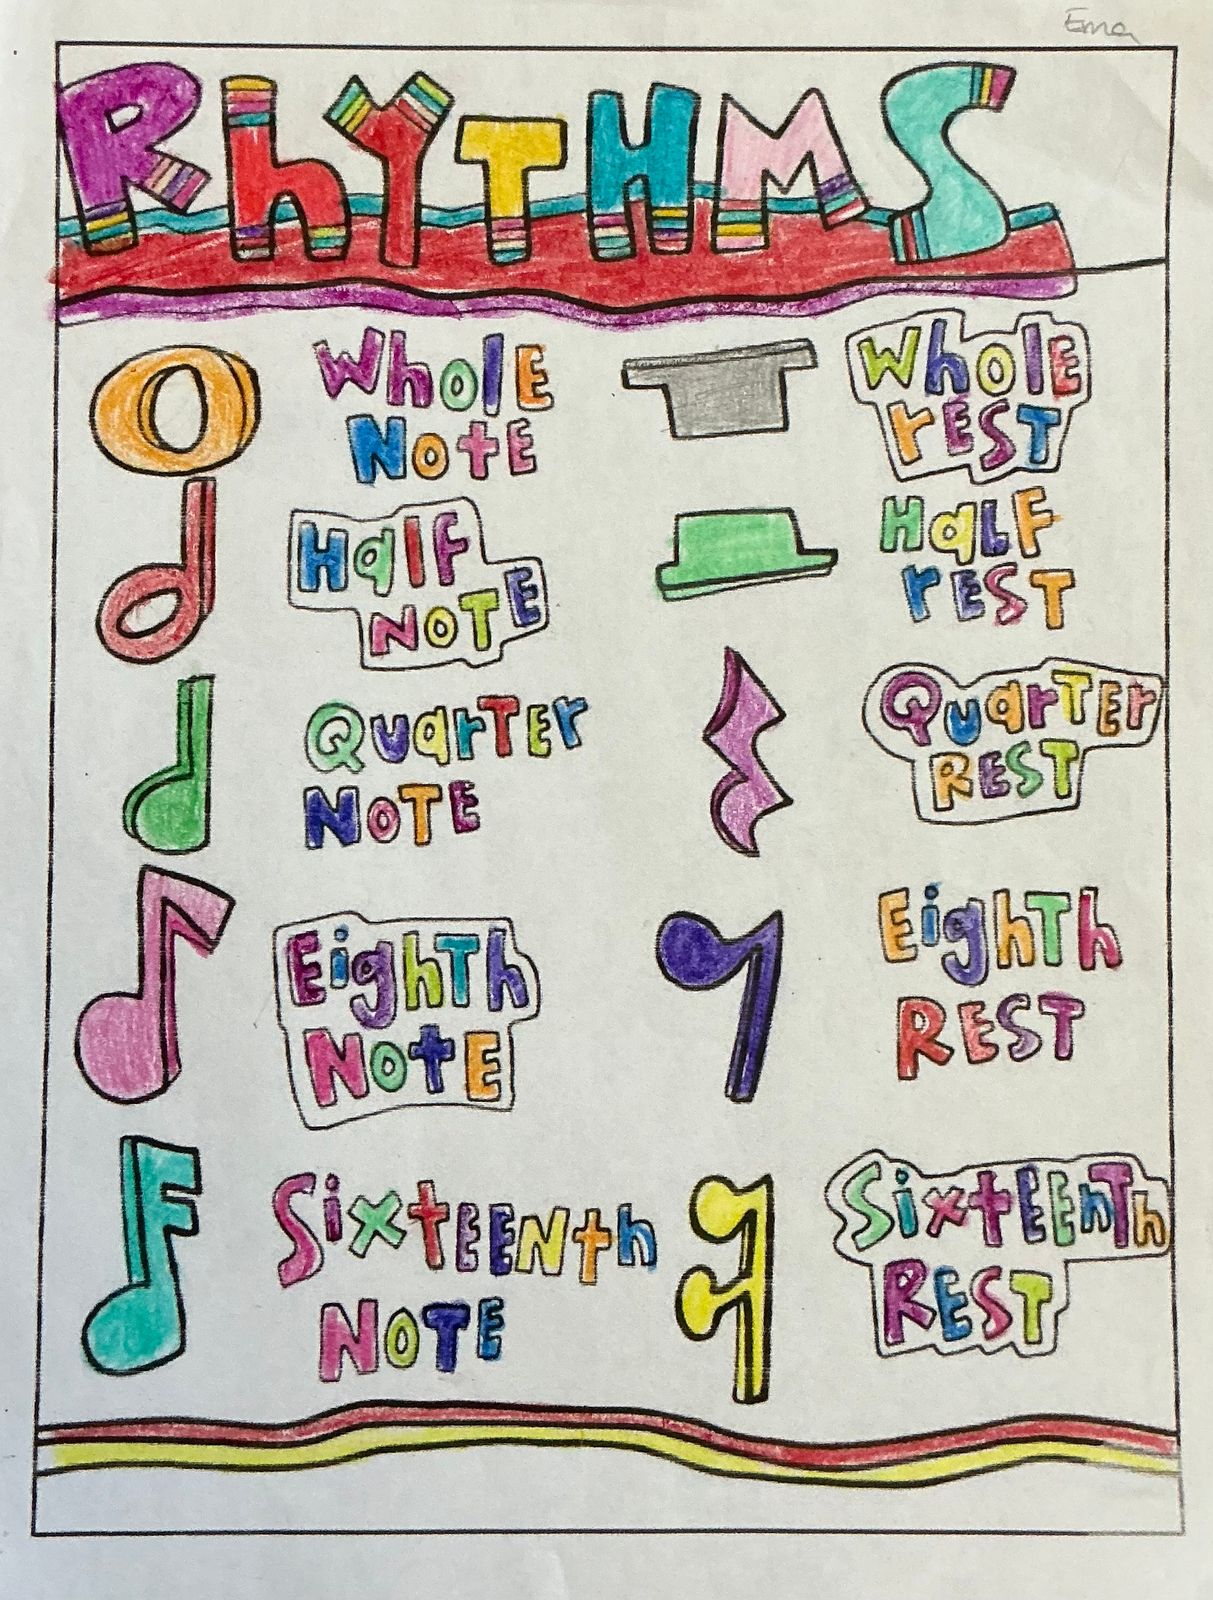 Ema
RhYTHMS
Whole
Note
Whole
rEST
Half
NOTE
HaLF
rEST
QuarTEr
NOTE
QuarTEr
REST
EighTh
NotE
EighTh
REST
SixtEENth
NOTE
SixtEEnTh
REST